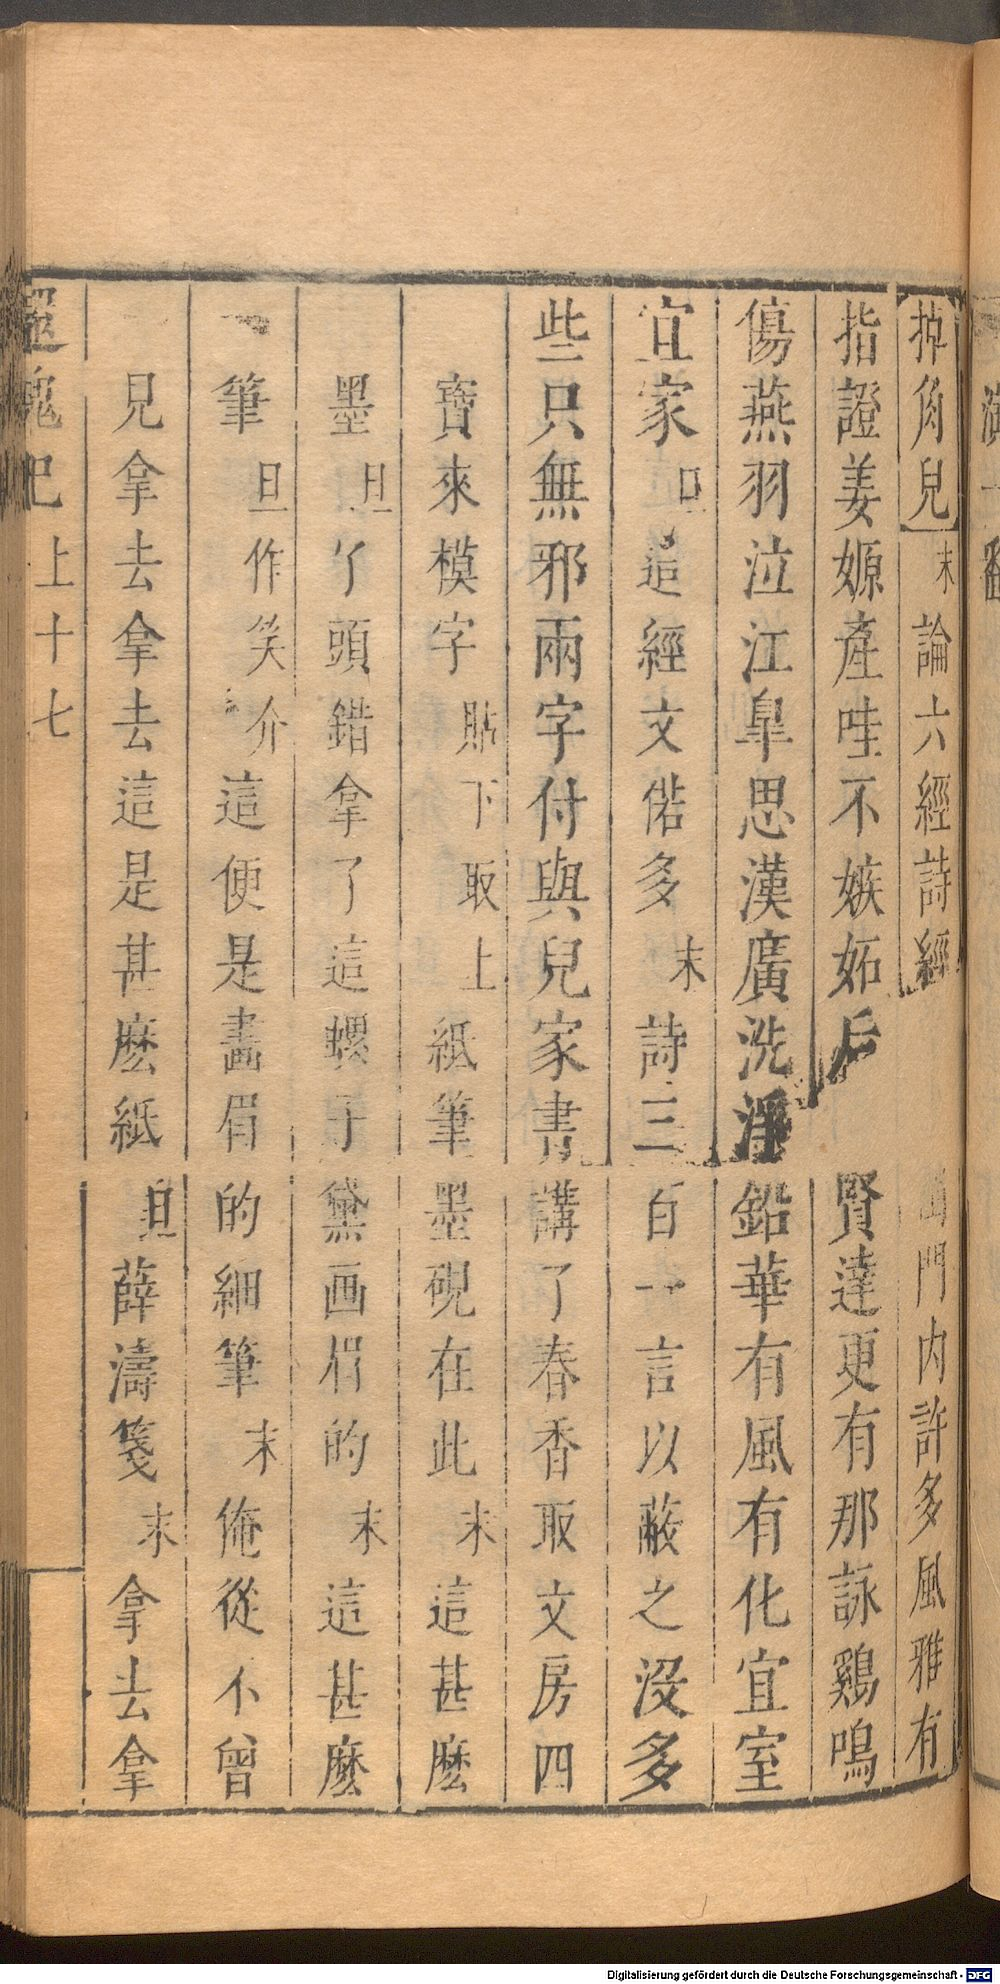 掉角兒末論六經詩經門内許多風雅有
指證姜嫄產哇不嫉妬后賢達更有那詠鷄鳴
傷燕羽泣江臯思漢廣洗淨鉛華有風有化宜室
宜家旦這經文偌多末詩三百一言以蔽之沒多
些只無邪兩字付與兒家書講了春香取文房四
寶來模字貼下取上紙筆墨硯在此末這甚麽
墨旦丫頭錯拿了這螺子黛画眉的末這甚麽
筆旦作笑介這便是畵眉的細筆末俺從不曾
見拿去拿去這是甚麽紙旦薛濤箋末拿去拿
還魂記上十七
Digitalisierung gefördert durch die Deutsche Forschungsgemeinschaft - DFG